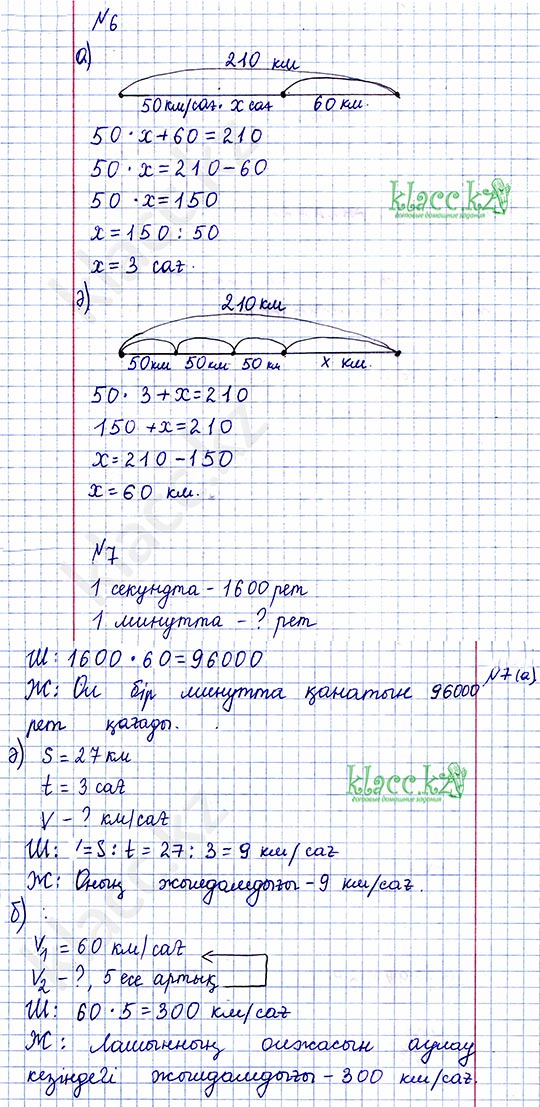 №6
а)
210 км
50км/сағ · х сағ 60 км.
50 · х + 60 = 210
50 · х = 210 - 60
50 · х = 150
х = 150 : 50
х = 3 сағ.
klacc.kz
готовые домашние задания
ә)
210 км
50км 50км 50км х км.
50 · 3 + х = 210
150 + х = 210
х = 210 - 150
х = 60 км.
№7
1 секундта - 1600 рет
1 минутта - ? рет
Ш: 1600 · 60 = 96000
№7(а)
Ж: Ол бір минутта қанатын 96000
рет қағады.
ә) S = 27 км
t = 3 сағ
V - ? км/сағ
klacc.kz
готовые домашние задания
Ш: = S : t = 27 : 3 = 9 км/сағ
Ж: Оның жылдамдығы - 9 км/сағ.
б)
V₁ = 60 км/сағ
V₂ - ?, 5 есе артық
Ш: 60 · 5 = 300 км/сағ
Ж: Лашынның олжасын аулау
кезіндегі жылдамдығы - 300 км/сағ.